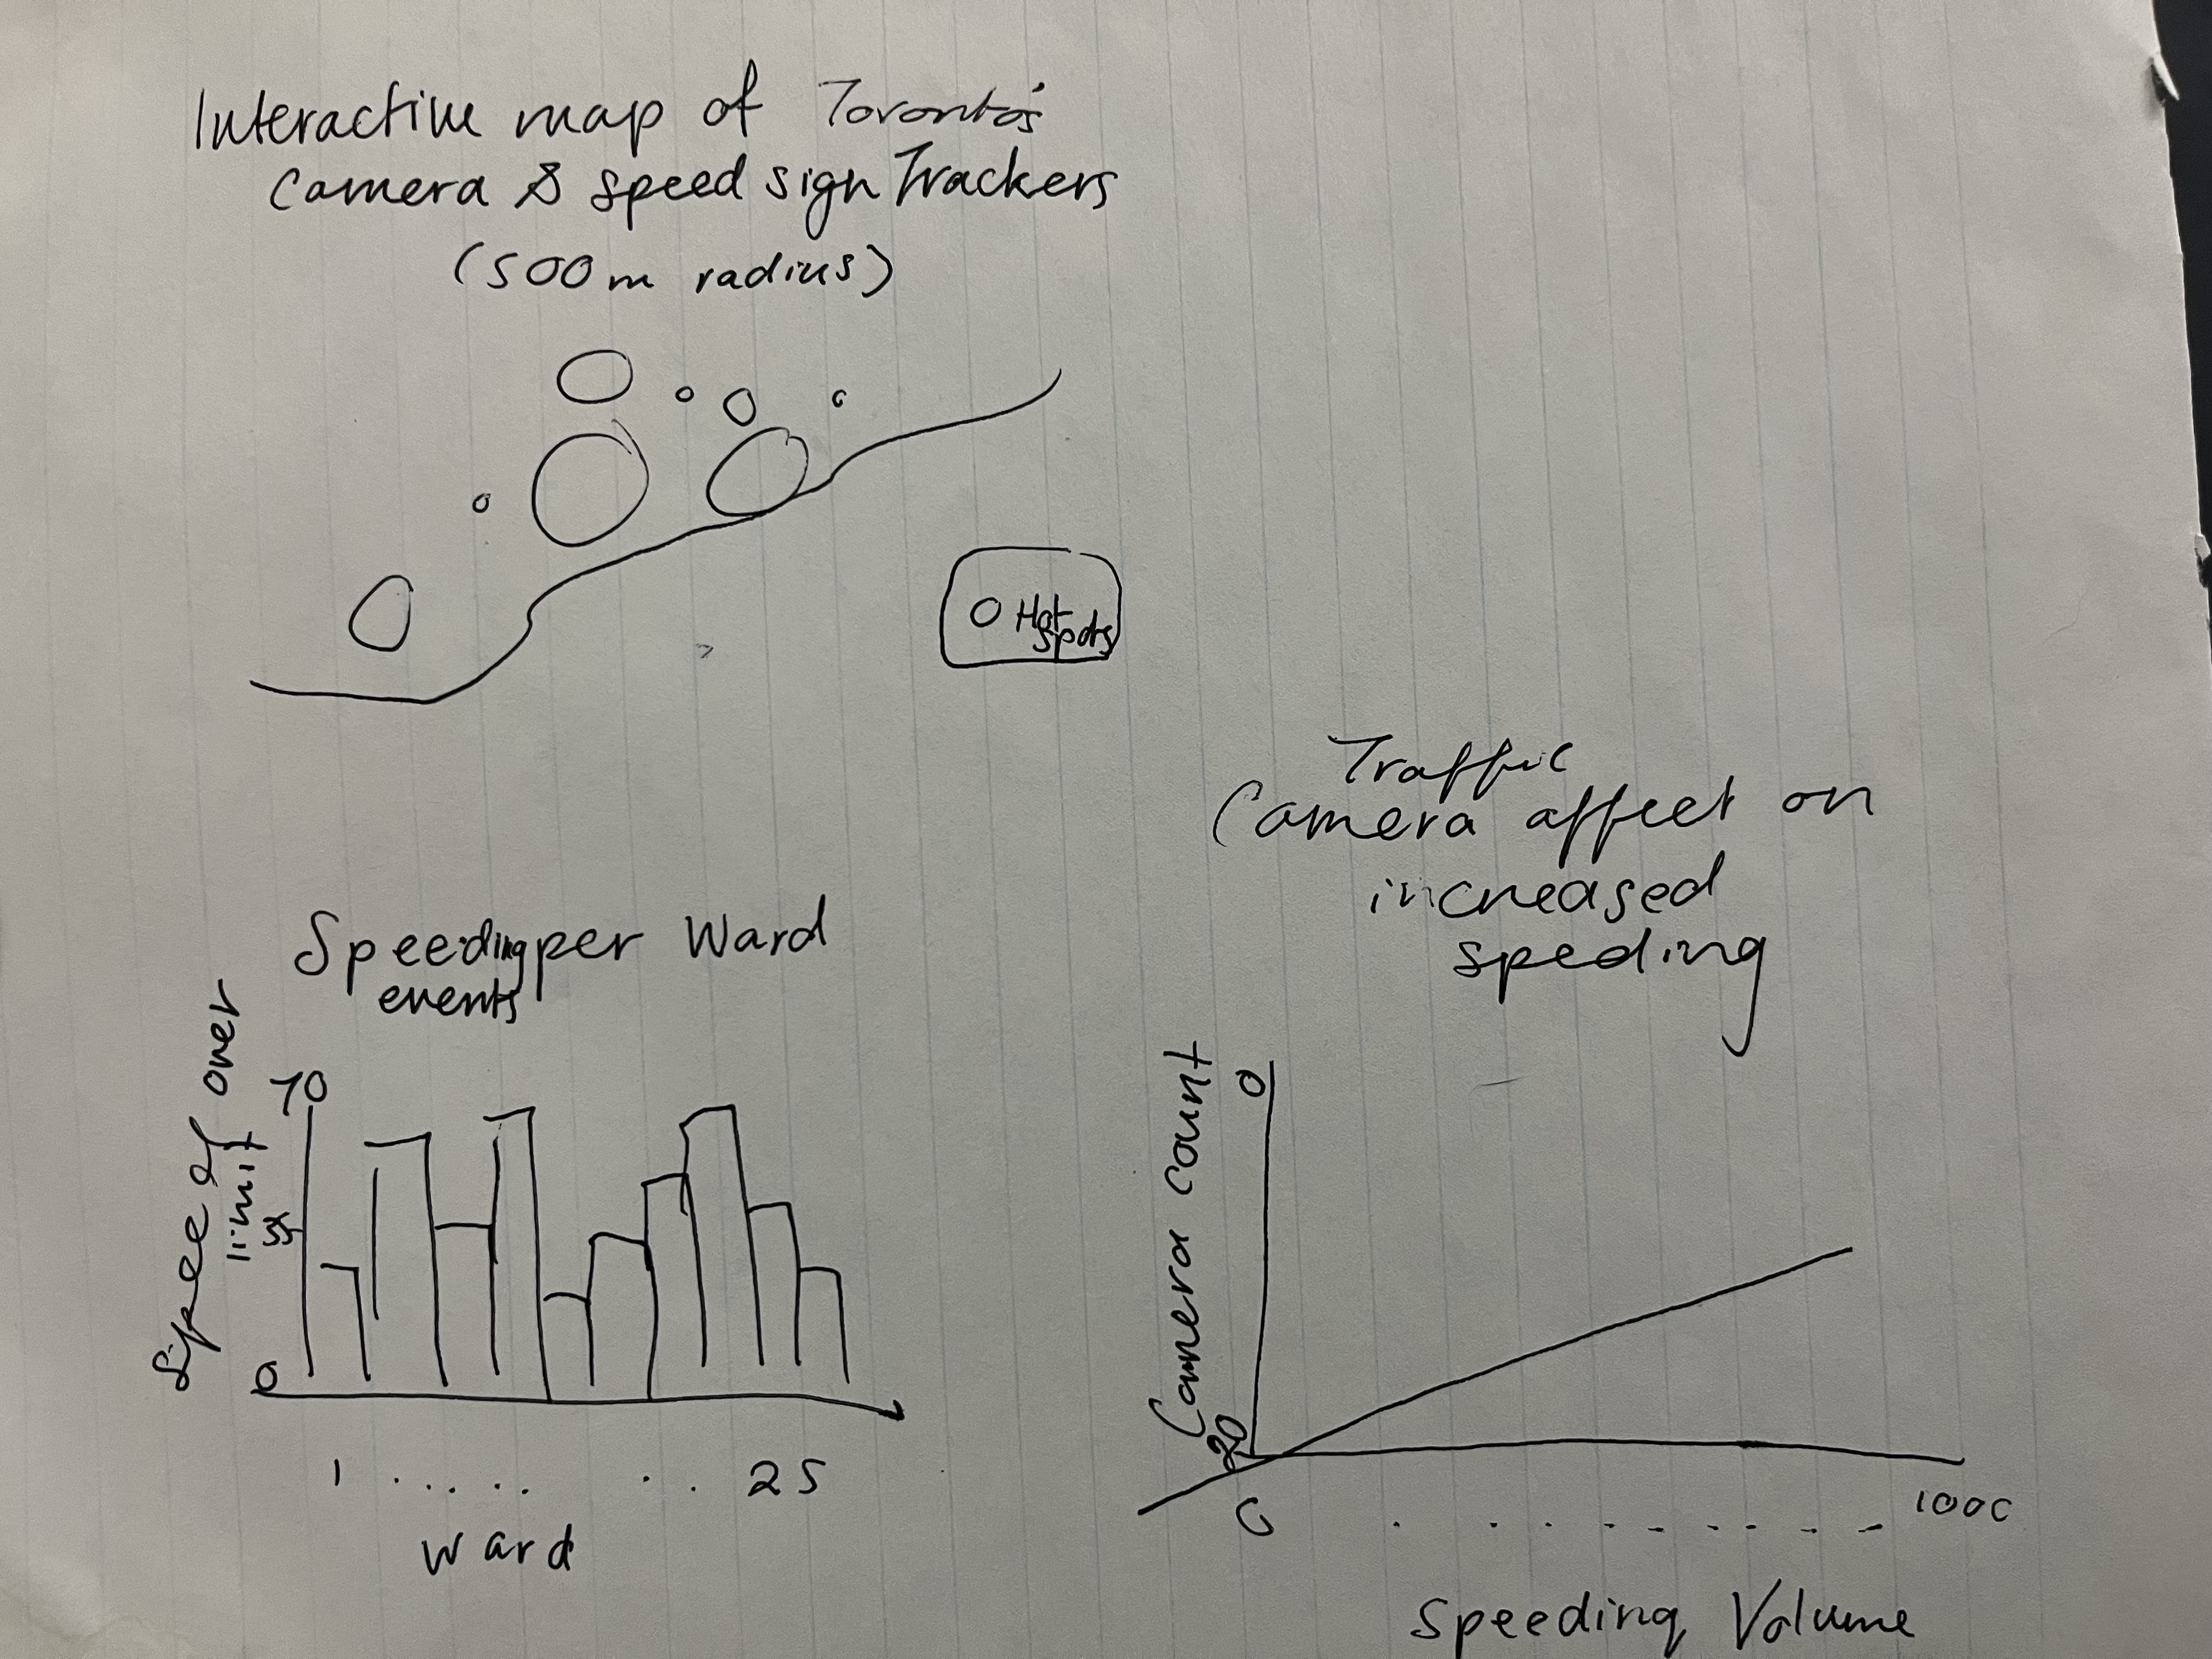 Interactive map of Toronto's
Camera & Speed sign Trackers
(500 m radius)
O Hot
spots
Speeding per Ward
events
Speed over
limit
70
35
0
1 . . . . . . . 25
Ward
Traffic
Camera affect on
increased
speeding
Camera count
0
20
0 . . . - - - - - - 1000
Speeding Volume